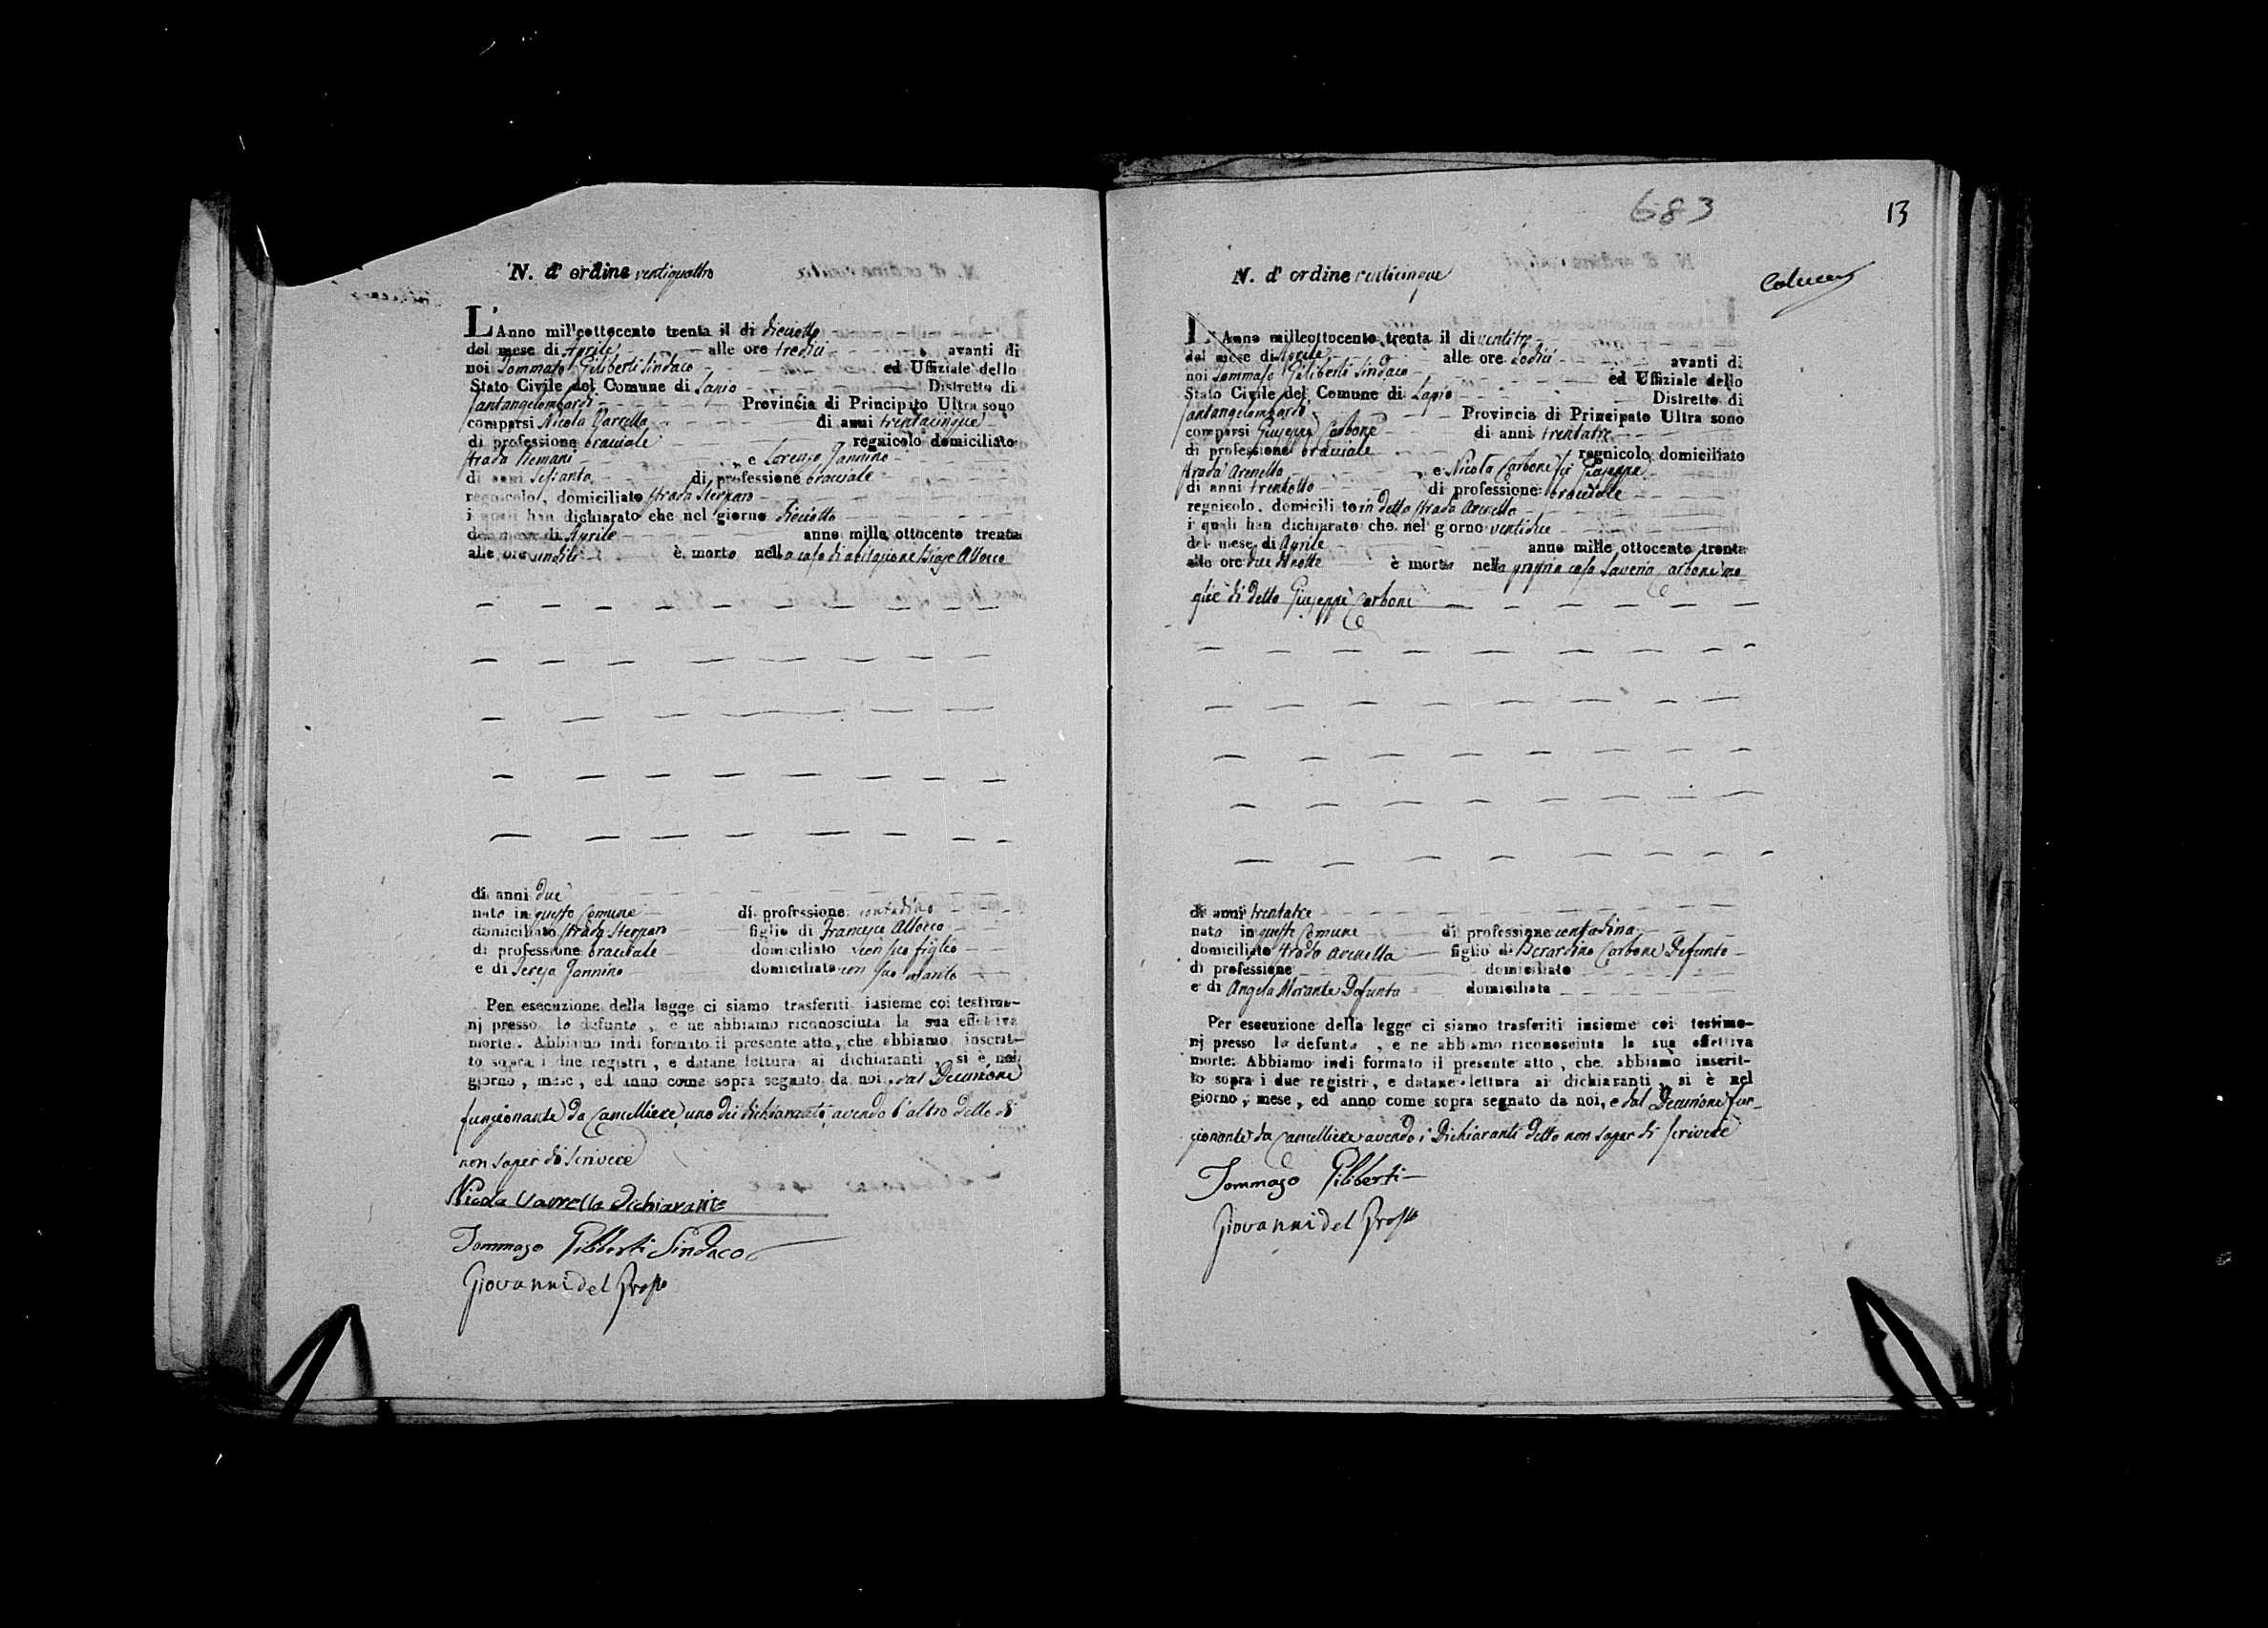 N. d' ordine ventiquattro
L'Anno mill'eottocento trenta il di dieciotto
del mese di Aprile alle ore tredici avanti di
noi Tommaso Giliberti Sindaco ed Uffiziale dello
Stato Civile del Comune di Lapio Distretto di
Santangelombardi Provincia di Principato Ultra sono
comparsi Nicola di anni trentacinque
di professione bracciale regnicolo domiciliato
strada , e Lorenzo Jannino
di anni sessanta di professione bracciale
regnicolo, domiciliato strada Sterparo
i quali han dichiarato che nel giorno dieciotto
del mese di Aprile anno mille ottocento trenta
alle ore undici è morto nella casa di abitazione Biase Allocco
di anni due
nato in questo Comune di professione contadino
domiciliato strada Sterparo figlio di Francesco Allocco
di professione bracciale domiciliato con suo figlio
e di Teresa Jannino domiciliata con suo marito
Per esecuzione della legge ci siamo trasferiti insieme coi testimo-
nj presso lo defunto, e ne abbiamo riconosciuta la sua effettiva
morte. Abbiamo indi formato il presente atto, che abbiamo inscrit-
to sopra i due registri, e datane lettura ai dichiaranti, si è nel
giorno, mese, ed anno come sopra segnato da noi, dal Decurione
funzionante da Cancelliere, uno dei dichiaranti, avendo l'altro detto di
non saper di scrivere
Nicola dichiarante
Tommaso Giliberti Sindaco
Giovanni del Grosso
683
13
N. d' ordine venticinque
L'Anno milleottocento trenta il di ventitre
del mese di Aprile alle ore dodici avanti di
noi Tommaso Giliberti Sindaco ed Uffiziale dello
Stato Civile del Comune di Lapio Distretto di
Santangelombardi Provincia di Principato Ultra sono
comparsi Giuseppe Carbone di anni trentatre
di professione bracciale regnicolo domiciliato
strada Arenella , e Nicola Carbone fu Giuseppe
di anni trentotto di professione bracciale
regnicolo, domiciliato in detta strada Arenella
i quali han dichiarato che nel giorno ventidue
del mese di Aprile anno mille ottocento trenta
alle ore due di notte è morta nella propria casa Saveria Carbone mo-
glie di detto Giuseppe Carbone
di anni trentatre
nata in questo Comune di professione contadina
domiciliata strada Arenella figlia di Berardino Carbone Defunto
di professione domiciliato
e di Angela Morante Defunta domiciliata
Per esecuzione della legge ci siamo trasferiti insieme coi testimo-
nj presso la defunta, e ne abbiamo riconosciuta la sua effettiva
morte. Abbiamo indi formato il presente atto, che abbiamo inscrit-
to sopra i due registri, e datane lettura ai dichiaranti, si è nel
giorno, mese, ed anno come sopra segnato da noi, e dal Decurione fun-
zionante da Cancelliere avendo i Dichiaranti detto non saper di scrivere
Tommaso Giliberti
Giovanni del Grosso